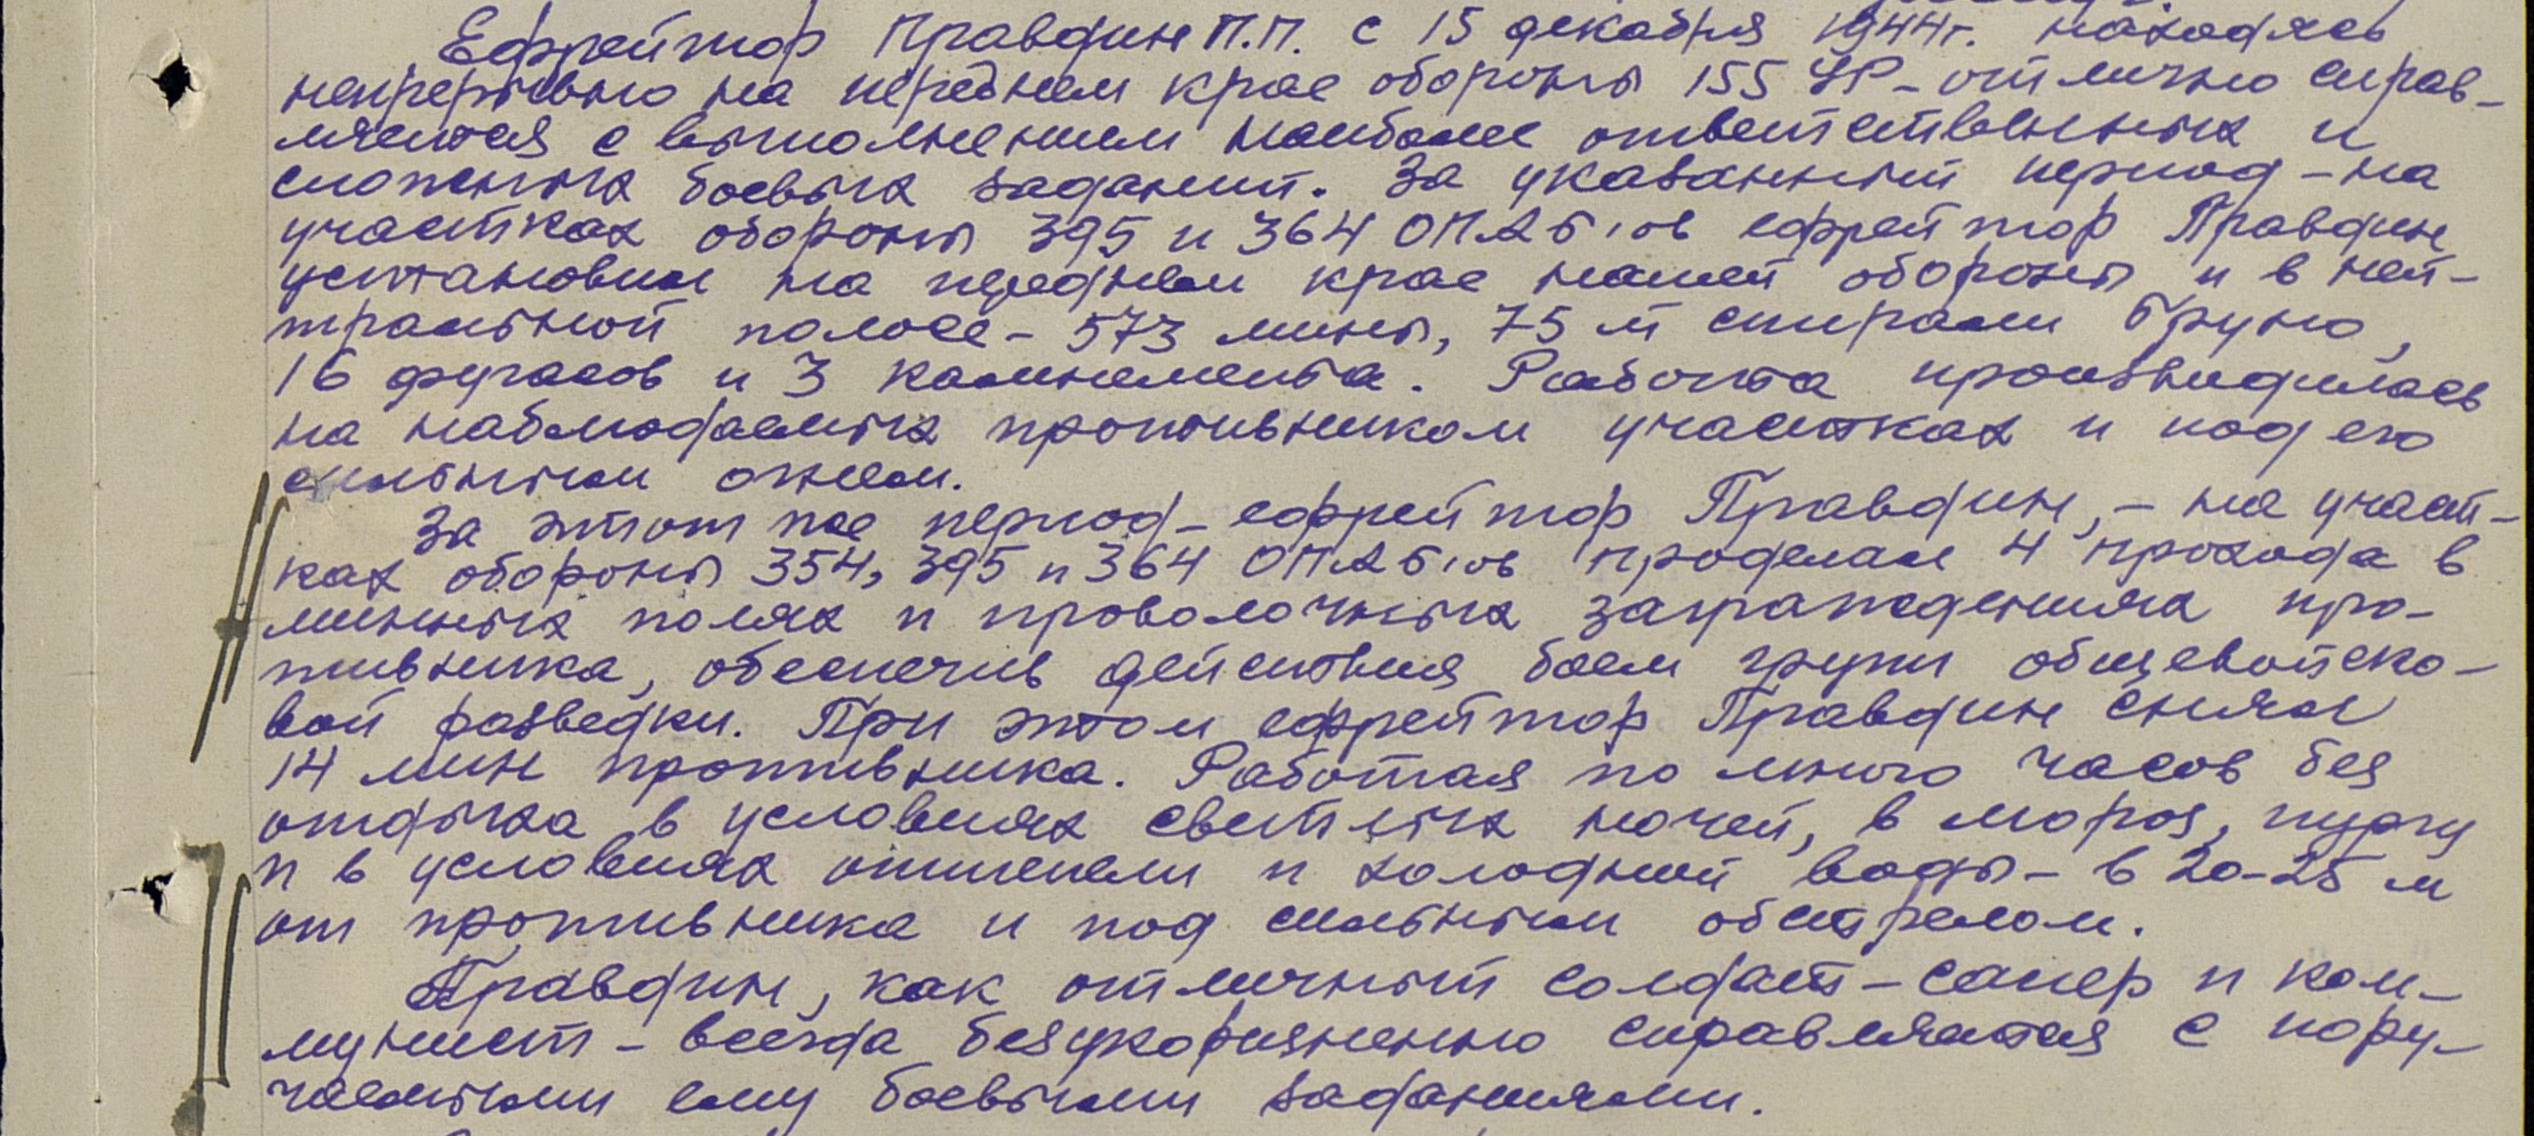 Ефрейтор Правдин П.П. с 15 декабря 1944г. находясь
непрерывно на переднем крае обороны 155 УР - отлично справ-
ляется с выполнением наиболее ответственных и
сложных боевых заданий. За указанный период - на
участках обороны 395 и 364 ОПАБ'ов ефрейтор Правдин
установил на переднем крае нашей обороны и в ней-
тральной полосе - 573 мины, 75 м спирали Бруно,
16 фугасов и 3 камнемета. Работа производилась
на наблюдаемых противником участках и под его
сильным огнем.
За этот же период - ефрейтор Правдин, - на участ-
ках обороны 354, 395 и 364 ОПАБ'ов проделал 4 прохода в
минных полях и проволочных заграждениях про-
тивника, обеспечив действия боем групп общевойско-
вой разведки. При этом ефрейтор Правдин снял
14 мин противника. Работая по много часов без
отдыха в условиях светлых ночей, в мороз, пургу
и в условиях оттепели и холодной воды - в 20-25 м
от противника и под сильным обстрелом.
Правдин, как отличный солдат - сапер и ком-
мунист - всегда безукоризненно справляется с пору-
чаемыми ему боевыми заданиями.